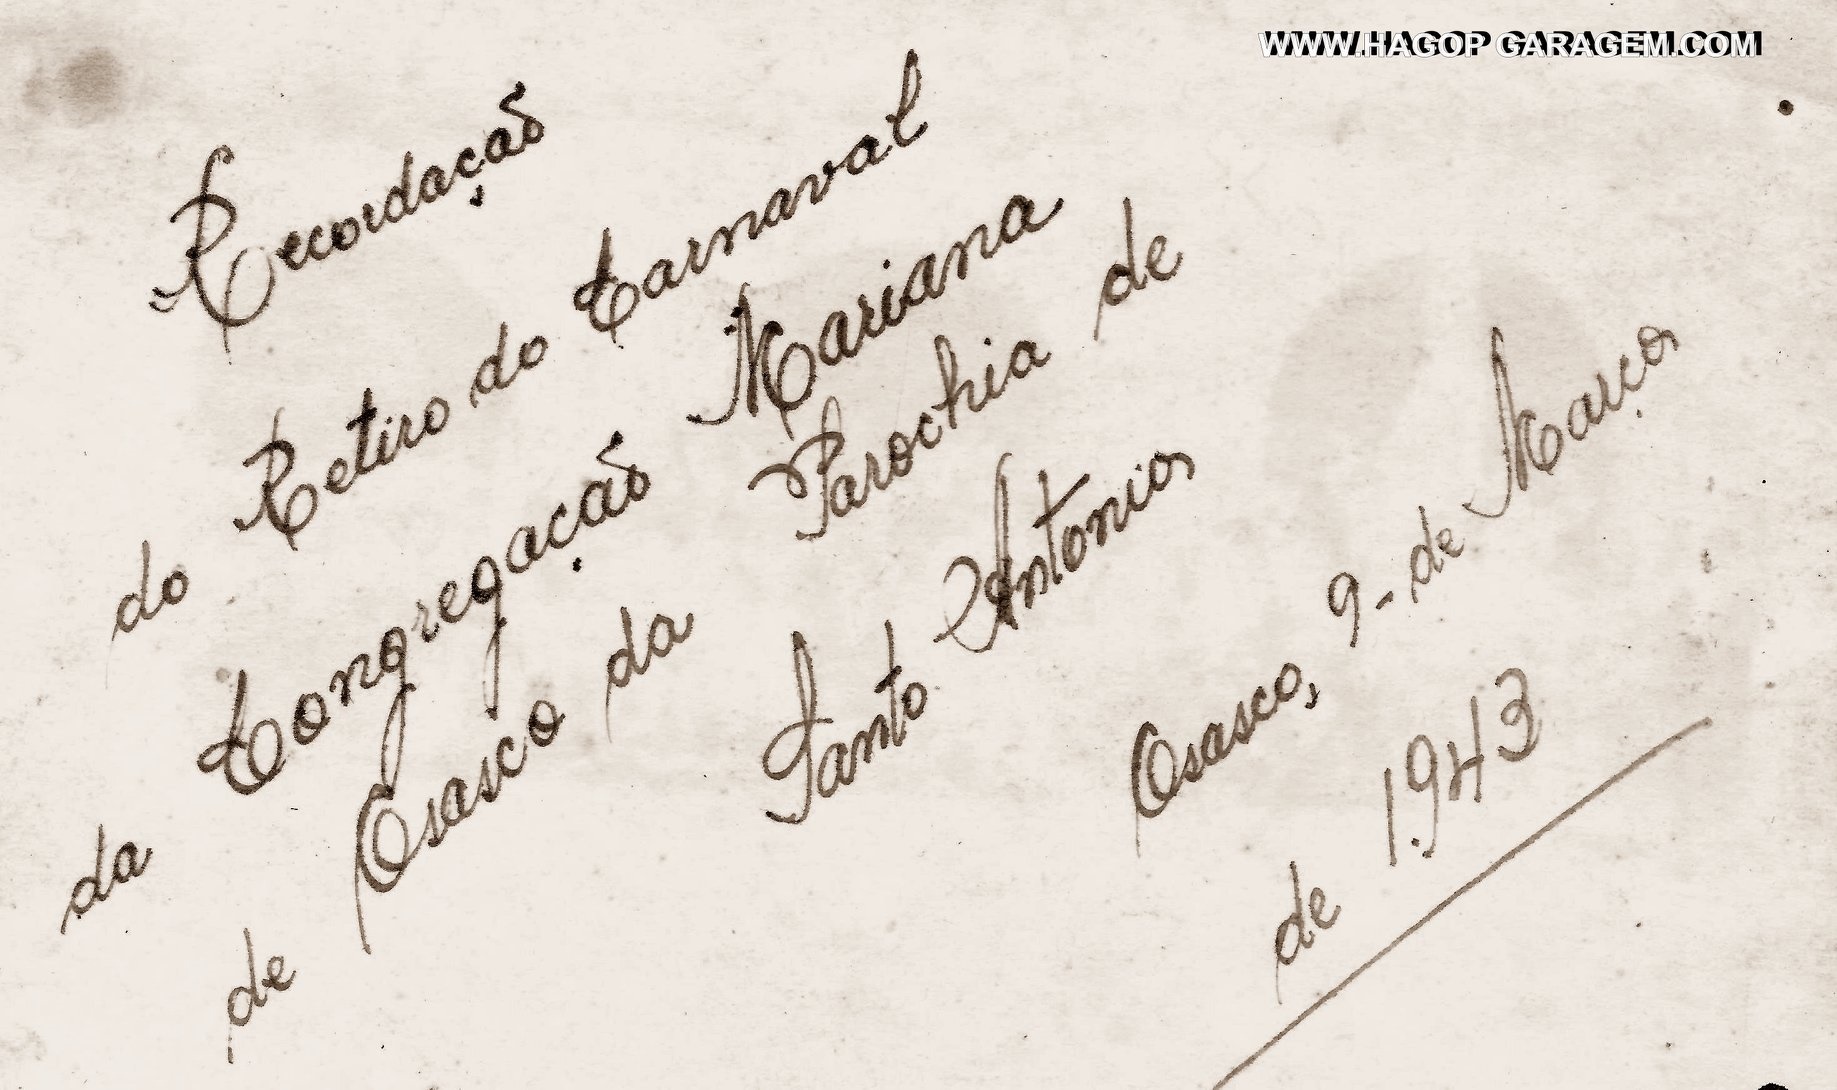 WWW.HAGOP GARAGEM.COM
Recordação
do Retiro do Carnaval
da Congregação Mariana
de Osasco da Parochia de
Santo Antonio
Osasco, 9- de Março
de 1.943